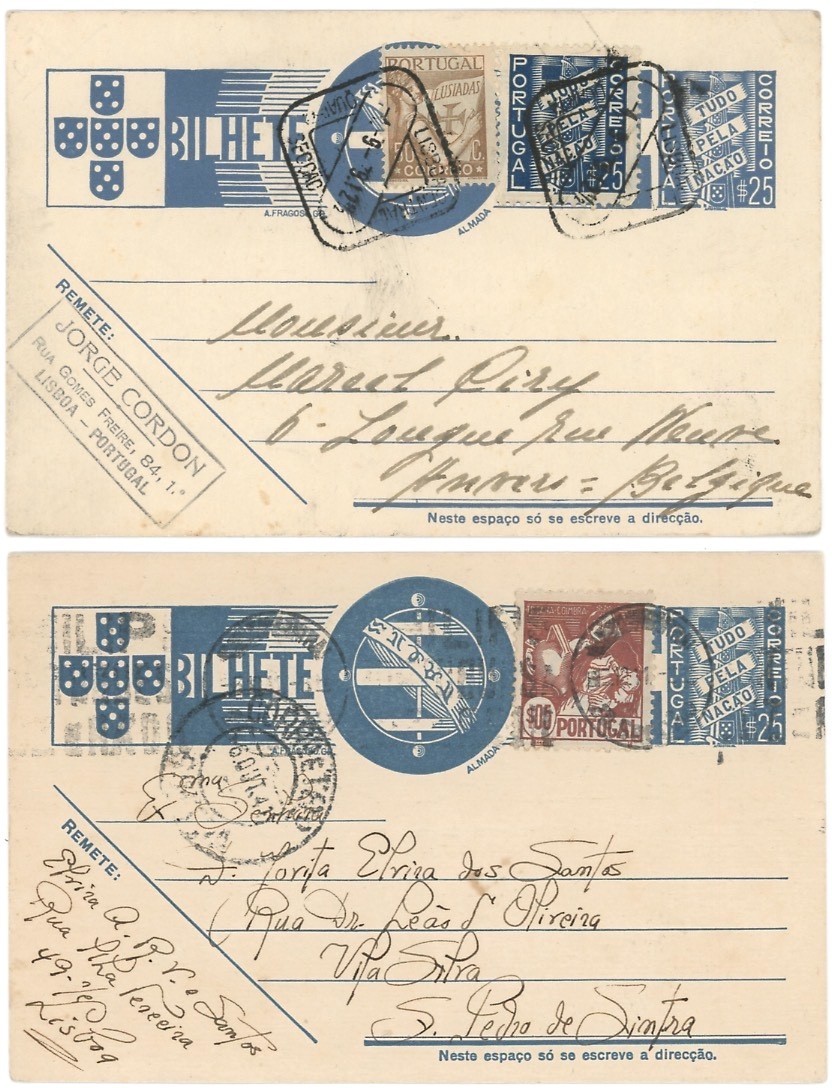 BILHETE
A. FRAGOSO GR.
ALMADA
PORTUGAL
LUSIADAS
CORREIO
PORTUGAL
CORREIO
TUDO
PELA
NAÇÃO
$25
PORTUGAL
CORREIO
TUDO
PELA
NAÇÃO
$25
REMETE:
JORGE CORDON
RUA GOMES FREIRE, 84, 1.º
LISBOA - PORTUGAL
Monsieur.
Marcel Ciry
6- Longue Rue Neuve.
Anvers = Belgique
Neste espaço só se escreve a direcção.
BILHETE
A. FRAGOSO GR.
ALMADA
$05
PORTUGAL
PORTUGAL
CORREIO
TUDO
PELA
NAÇÃO
$25
Exma
REMETE:
Elvira A. R. V. e Santos
Rua Ilha Terceira
49-
Lisboa
Elvira dos Santos
Rua Dr. Leão d'Oliveira
Vila Silva
S. Pedro de Sintra
Neste espaço só se escreve a direcção.